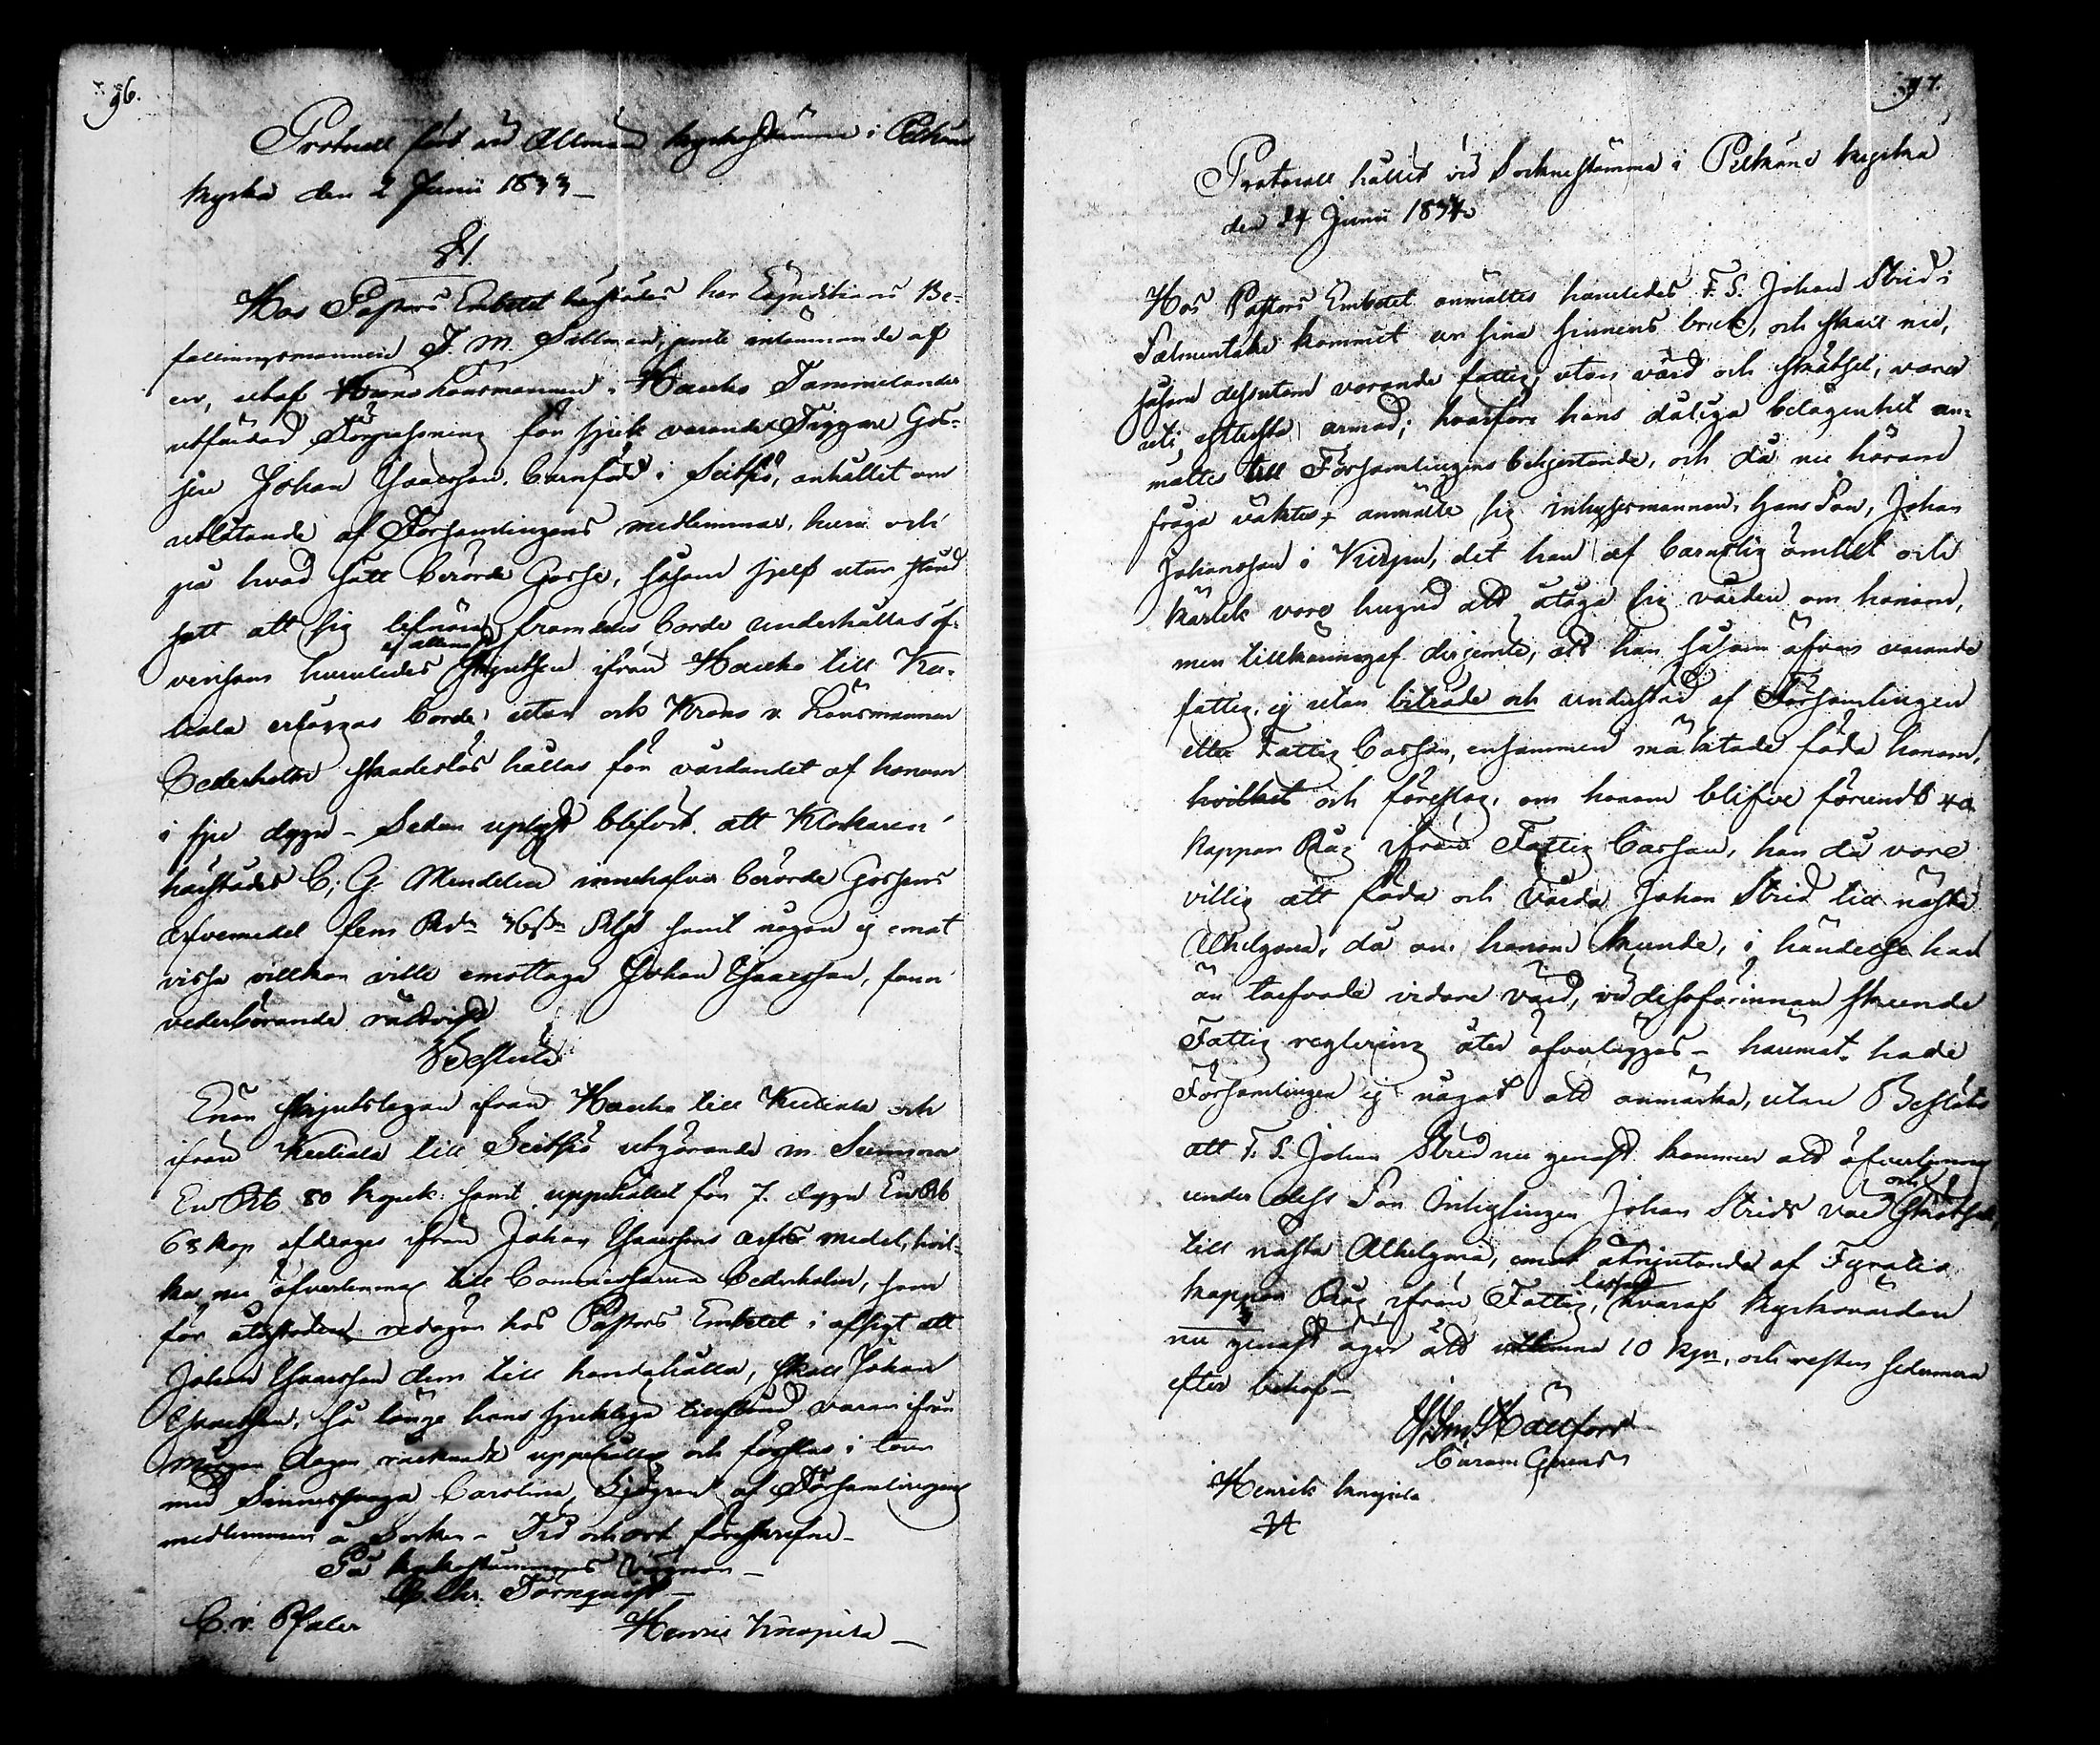 96.
Protocoll fördt vid Allmän kyrkostämma i Pelkäne
kyrka den 2 Junii 1833 –
§1.
Hos Pastors Embetet härstädes har Expeditions Be-
fallningsmannen J. M. Sallmen, jemte insännande af
en, utaf Kronolänsmannen i Hauho Tammelander
utfärdad Förpassning för sjuk varande Tiggare Gos-
sen Johan Isacsson, barnfödd i Seitsiö, anhållit om
utlåtande af Församlingens medlemmar, huru och
på hvad sätt berörde Gosse, såsom sjelf utan stånd
satt att sig lifnära, framdeles borde underhållas öf-
vensom huruledes skjutsen ifrån Hauho till Ku-
liala erläggas borde, utan ock Krono v. Länsmannen
Cederholm skadeslös hållas för vårdandet af honom
i sju dygn – Sedan uplyst blifvit att Klockaren
härstädes C. G. Mendelin innehafver berörde Gossens
arfvemedel fem Rd 36 sk Rgs samt någon ej emot
vissa villkor ville emottaga Johan Isacsson, fann
vederbörande rättvist
Beslut
Enär skjutslegan ifrån Hauho till Kuliala och
ifrån Kuliala till Seitsiö utgörande in Summa
En Rb 80 kopek samt uppehållet för 7. dygn En Rb
68 kop afdrages ifrån Johan Isacssons arfve medel, hvil-
ka nu öfverlemnas till Commissarien Cederholm, som
för återstoden redogör hos Pastors Embetet i afsigt att
Johan Isacsson dem till handahålla, skall Johan
Isacsson, så länge hans sjukliga tillstånd varar ifrån
morgon dagen räknadt uppehållas och förslas i tour
med Sinnessvaga Carolina Sjögren af Församlingens
medlemmar å Socken – Tid och ort föreskrifne –
På kyrkostämmans vägnar –
Törnquist –
C. v. Pfaler
Henric Knapila –
97.
Protocoll hållit vid Sockne stämma i Pelkäne kyrka
den 24 Junii 1834
Hos Pastors Embetet anmältes huruledes F. S. Johan Strid i
Salmentaka kommit un sina sinnens bruk, och skall nu,
såsom dessutom varande fattig, utan vård och skötsel, vara
uti ytterste armod; hvarföre hans dåliga belägenhet an-
mältes till Församlingens behjertande, och då nu härom
fråga väktes, anmälte sig inhysesmannen, hans Son, Johan
Johansson i Kurpu, det han af barnslig ömhet och
kärlek vore hugad att åtaga sig vården om honom,
men tillkännagaf derjemte, att han såsom äfven varande
fattig, ej utan biträde och understöd af Församlingen
eller Fattig Cassan, ensammen mäktade föda honom,
hvilket och föreslog, om honom blifve förundt 40
kappar Råg ifrån Fattig Cassan, han då vore
villig att föda och vårda Johan Strid till nästa
Alhelgona, då om honom kunde, i händelse han
än tarfvade vidare vård, vid dessförinnan skeende
Fattig reglering åter öfverläggas – häremot hade
Församlingen ej något att anmärka, utan Beslöts
att F. S. Johan Strid nu genast kommer att öfverlemnas
under dess Son Inhyslingen Johan Strids vård och skötsel
till nästa Alhelgona, emot åtnjutande af Fyratio
kappar Råg ifrån Fattig, hvaraf kyrkovärden
nu genast äger att utlemna 10 kpr, och resten sedermera
efter behof –
Wilhm Hällfors
Curam Gerens
Henrik Knapila